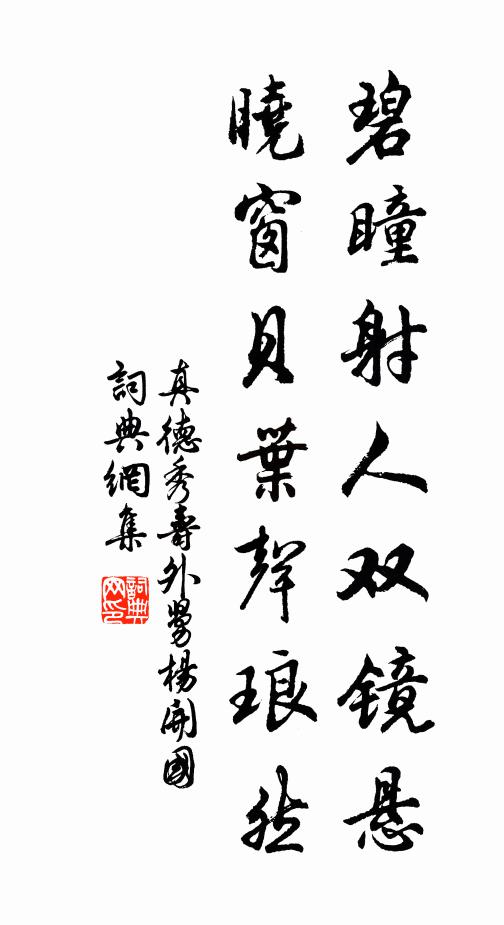 碧瞳射人双镜悬
曉窗貝葉聲琅然
真德秀壽外舅楊開國
詞典網集
詞典网印